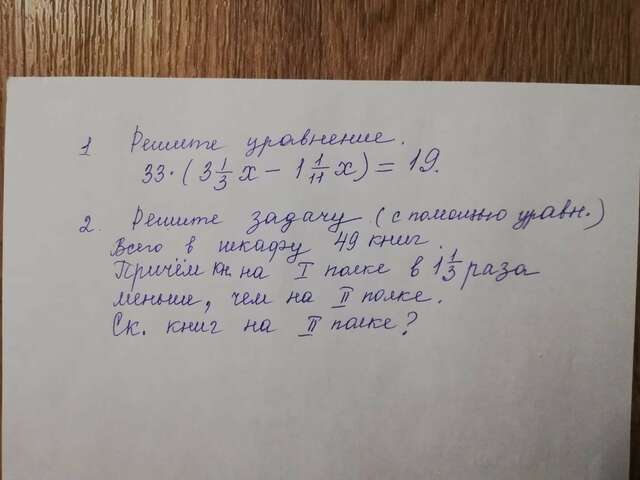 1 Решите уравнение.
33·(3 1/3 x − 1 1/11 x) = 19.
2. Решите задачу (с помощью уравн.)
Всего в шкафу 49 книг.
Причём кн. на I полке в 1 1/3 раза
меньше, чем на II полке.
Ск. книг на II полке?